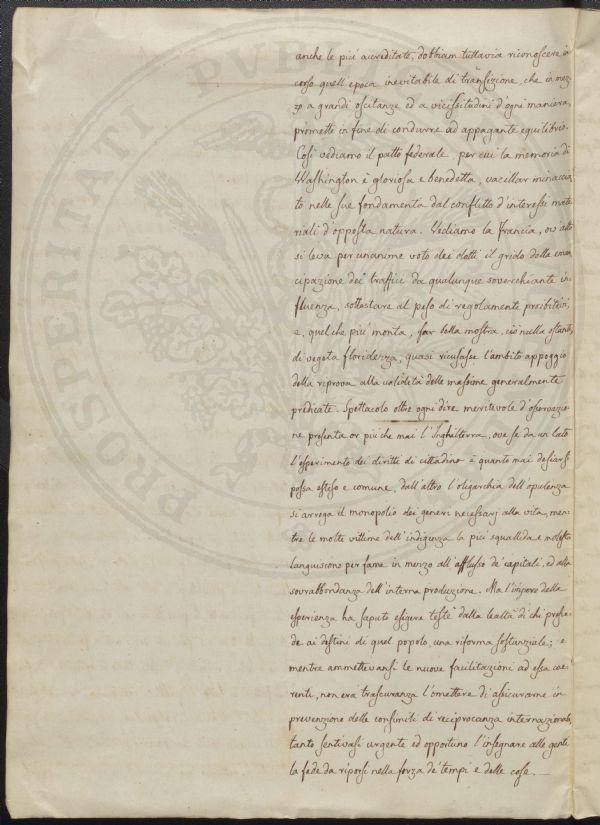 anche le più accreditate, dobbiam tuttavia riconoscere in
corso quell'epoca inevitabile di transizione, che in mez-
zo a grandi oscitanze ed a vicissitudini d'ogni maniera,
promette in fine di condurre ad appagante equilibrio.
Così vediamo il patto federale, per cui la memoria di
Washington è gloriosa e benedetta, vacillar minaccia-
to nelle sue fondamenta dal conflitto d'interessi mate-
riali d'opposta natura. Vediamo la Francia, ov'alto
si leva per unanime voto dei dotti il grido della eman-
cipazione dei traffici da qualunque soverchiante in-
fluenza, sottostare al peso di regolamente proibitivi,
e, quel che più monta, far bella mostra, ciò nulla ostante,
di vegeta floridenza, quasi ricusasse l'ambito appoggio
della riprova alla validità delle massime generalmente
predicate. Spettacolo oltre ogni dire meritevole d'osservazio-
ne presenta or più che mai l'Inghilterra, ove se da un lato
l'esperimento dei diritti di cittadino è quanto mai desiarsi
possa esteso e comune, dall'altro l'oligarchia dell'opulenza
si arroga il monopolio dei generi necessarj alla vita, men-
tre le molte vittime dell'indigenza la più squallida e molesta
languiscono per fame in mezzo all'afflusso de' capitali, ed alla
sovrabbondanza dell'interna produzione. Ma l'impero della
esperienza ha saputo esigere testè dalla lealtà di chi presie-
de ai destini di quel popolo, una riforma sostanziale; e
mentre ammettevansi le nuove facilitazioni ad essa coe-
renti, non era trascuranza l'omettere di assicurarne in
prevenzione delle consuniti di reciprocanza internazionale,
tanto sentivasi urgente ed opportuno l'insegnare alle genti
la fede da riporsi nella forza de' tempi e delle cose. —
POSTERITATI
PVB